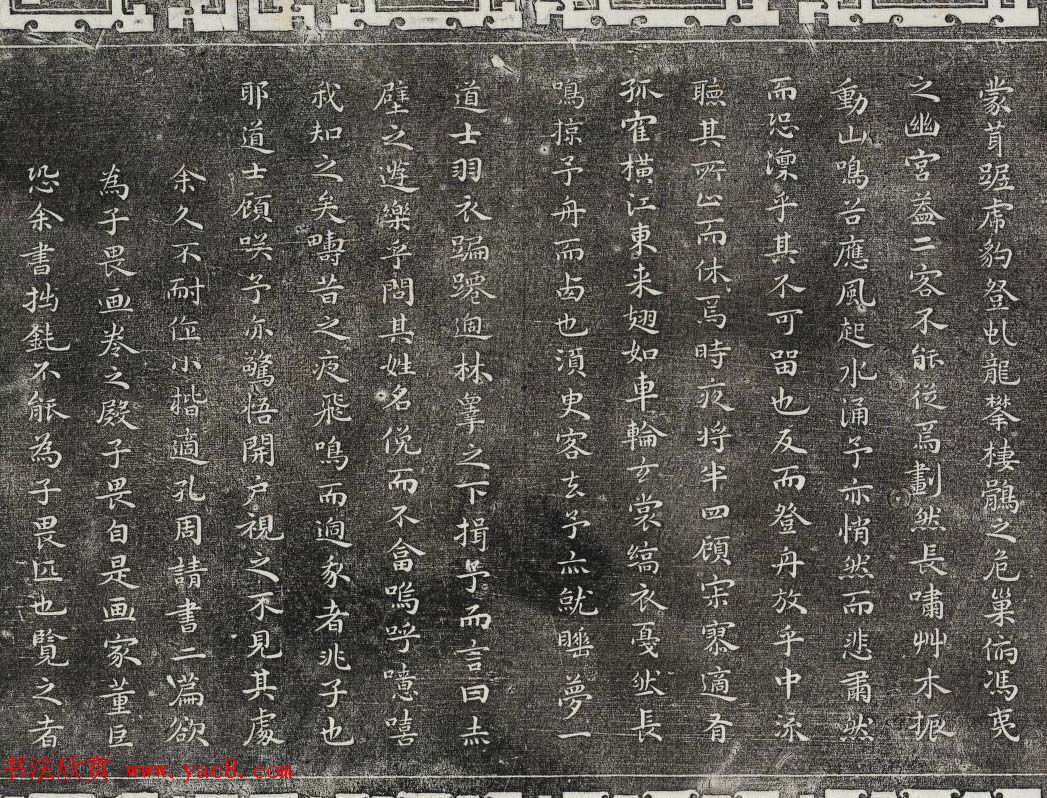 蒙茸踞虎豹登虬龍攀棲鶻之危巢俯馮夷
之幽宮蓋二客不能從焉劃然長嘯艸木振
動山鳴谷應風起水涌予亦悄然而悲肅然
而恐凜乎其不可留也反而登舟放乎中流
聽其所止而休焉時夜将半四顧寂寥適有
孤隺橫江東来翅如車輪玄裳縞衣戛然長
鳴掠予舟而西也須臾客去予亦就睡夢一
道士羽衣蹁躚過林皋之下揖予而言曰赤
壁之遊樂乎問其姓名俛而不畣嗚呼噫嘻
我知之矣疇昔之夜飛鳴而過我者非子也
耶道士顧笑予亦驚悟開户視之不見其處
余久不耐作小楷適孔周請書二篇欲
為子畏画卷之殿子畏自是画家董巨
恐余書拙鈍不能為子畏匹也覽之者
书法欣赏 www.yac8.com